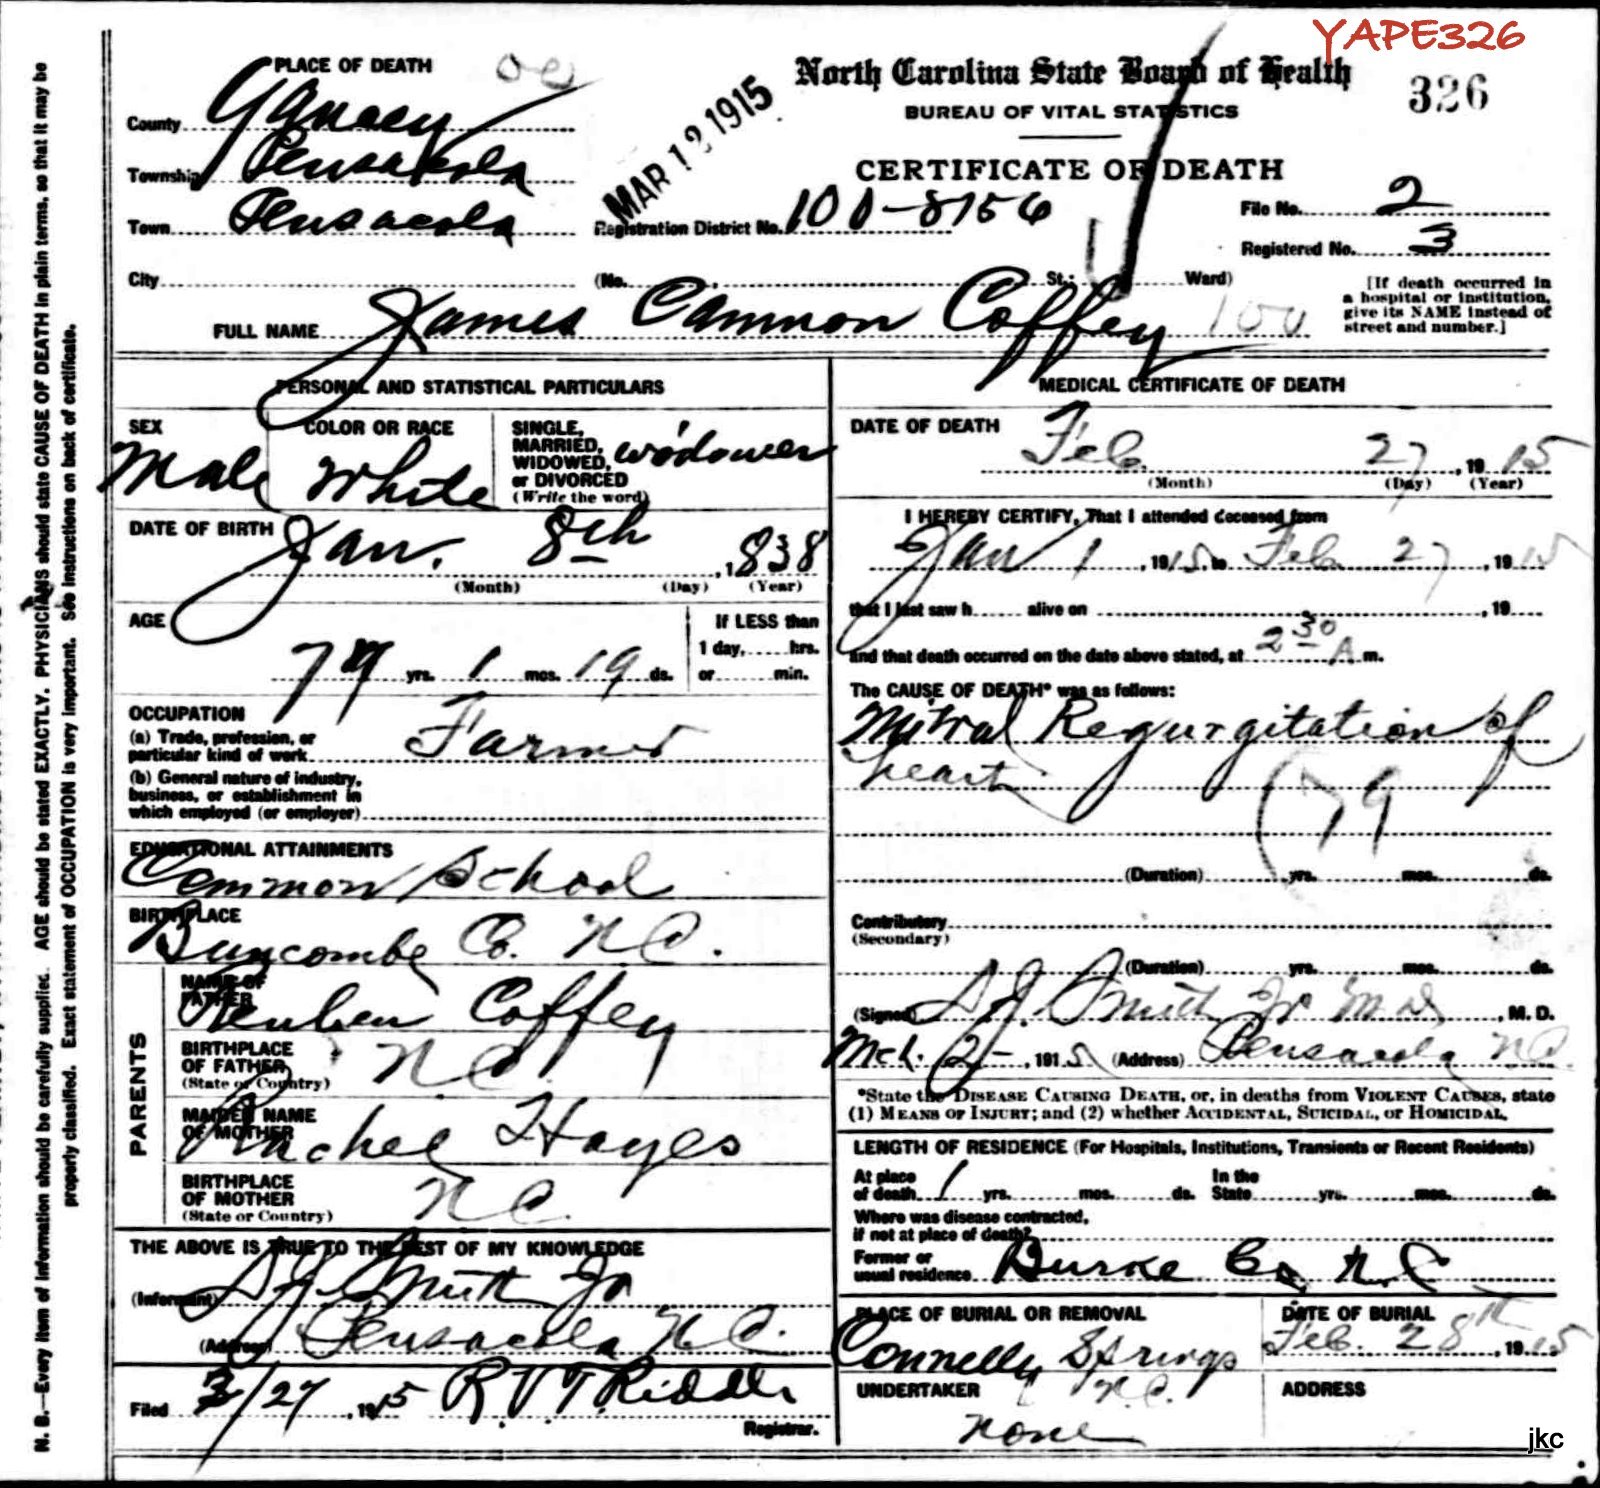 YAPE326
PLACE OF DEATH
North Carolina State Board of Health
326
BUREAU OF VITAL STATISTICS
County Yancey
MAR 12 1915
CERTIFICATE OF DEATH
Township Pensacola
Town Pensacola
Registration District No. 100-8156
File No. 2
Registered No. 3
City (No. St.; Ward)
[If death occurred in
a hospital or institution,
give its NAME instead of
street and number.]
FULL NAME James Cammon Coffey 100
PERSONAL AND STATISTICAL PARTICULARS
SEX
Male
COLOR OR RACE
White
SINGLE,
MARRIED,
WIDOWED,
or DIVORCED
(Write the word)
widower
DATE OF BIRTH
Jan. 8th, 1838
(Month) (Day) (Year)
AGE
77 yrs. 1 mos. 19 ds.
If LESS than
1 day, hrs.
or min.
OCCUPATION
(a) Trade, profession, or
particular kind of work Farmer
(b) General nature of industry,
business, or establishment in
which employed (or employer)
EDUCATIONAL ATTAINMENTS
Common School
BIRTHPLACE
Buncombe Co. N.C.
PARENTS
NAME OF
FATHER
Reuben Coffey
BIRTHPLACE
OF FATHER
(State or Country)
N.C.
MAIDEN NAME
OF MOTHER
Rachel Hayes
BIRTHPLACE
OF MOTHER
(State or Country)
N.C.
THE ABOVE IS TRUE TO THE BEST OF MY KNOWLEDGE
(Informant) Smith Jr
(Address) Pensacola N.C.
Filed 3/27, 1915 R.V.T. Riddle
Registrar.
MEDICAL CERTIFICATE OF DEATH
DATE OF DEATH
Feb. 27, 1915
(Month) (Day) (Year)
I HEREBY CERTIFY, That I attended deceased from
Jan 1, 1915 to Feb 27, 1915
that I last saw h alive on , 19
and that death occurred on the date above stated, at 2 30 A m.
The CAUSE OF DEATH* was as follows:
Mitral Regurgitation of
heart
79
(Duration) yrs. mos. ds.
Contributory
(Secondary)
(Duration) yrs. mos. ds.
(Signed) Smith Jr M.D., M. D.
Mch. 2-, 1915 (Address) Pensacola N.C.
*State the DISEASE CAUSING DEATH, or, in deaths from VIOLENT CAUSES, state
(1) MEANS OF INJURY; and (2) whether ACCIDENTAL, SUICIDAL, or HOMICIDAL.
LENGTH OF RESIDENCE (For Hospitals, Institutions, Transients or Recent Residents)
At place
of death 1 yrs. mos. ds.
In the
State yrs. mos. ds.
Where was disease contracted,
if not at place of death?
Former or
usual residence Burke Co. N.C.
PLACE OF BURIAL OR REMOVAL
Connelly Springs
N.C.
DATE OF BURIAL
Feb. 28th, 1915
UNDERTAKER
none
ADDRESS
jkc
N. B.—Every item of information should be carefully supplied. AGE should be stated EXACTLY. PHYSICIANS should state CAUSE OF DEATH in plain terms, so that it may be
properly classified. Exact statement of OCCUPATION is very important. See instructions on back of certificate.